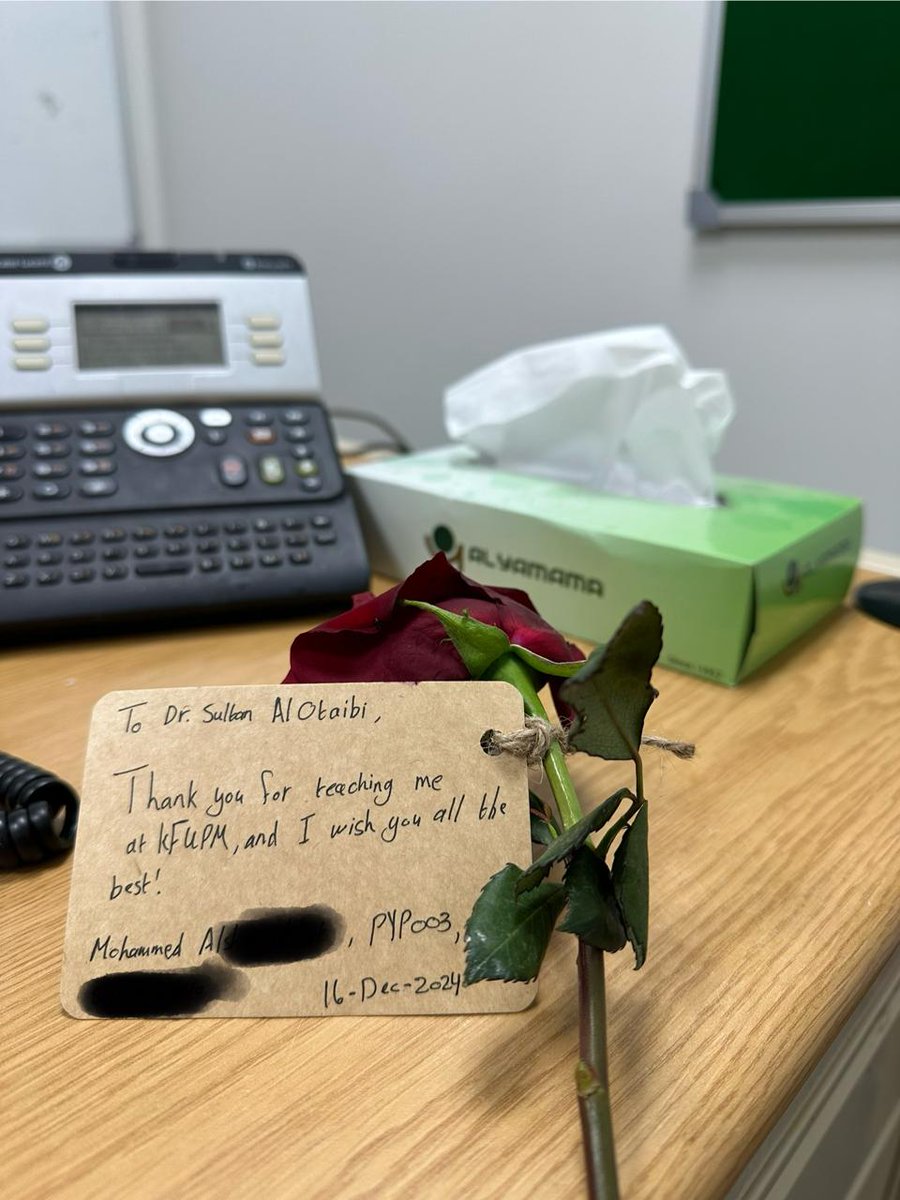 ALYAMAMA
To Dr. Sultan AlOtaibi,
Thank you for teaching me
at KFUPM, and I wish you all the
best!
Mohammed , PYP003,
16-Dec-2024